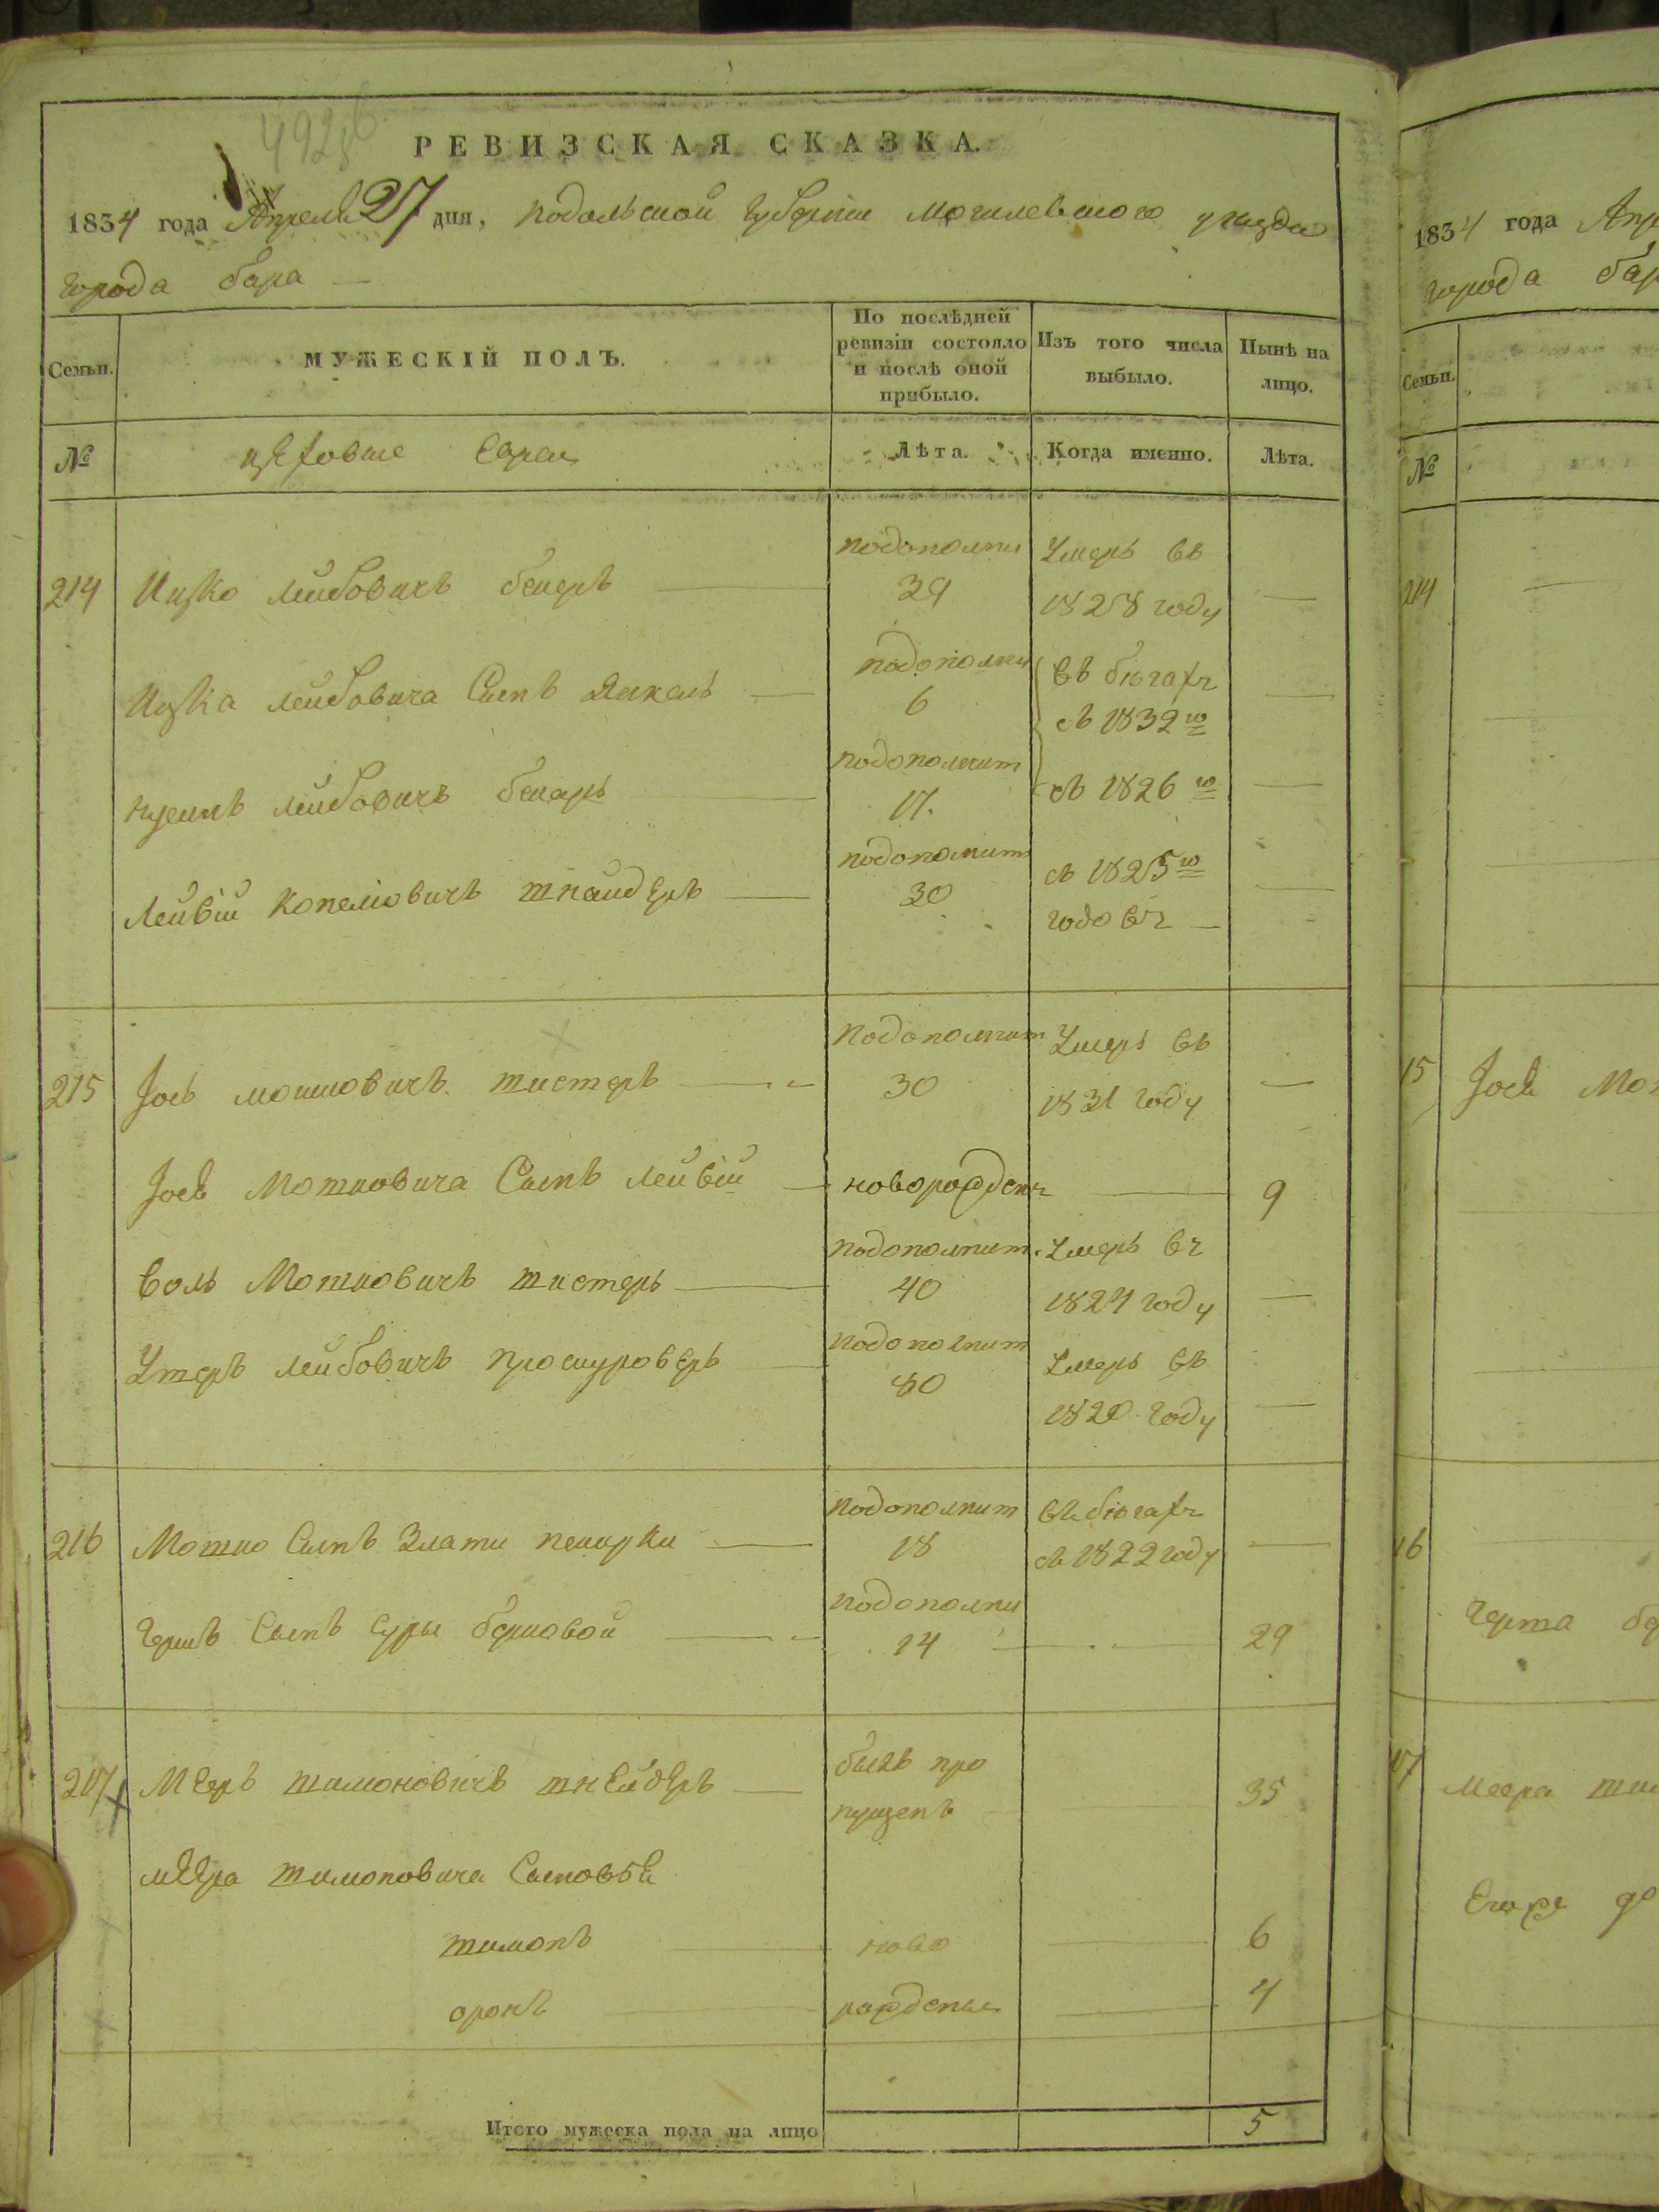 РЕВИЗСКАЯ СКАЗКА.
1834 года Апреля 27 дня, подольской губернии могилевского уезда
города бара —
Семьи.
МУЖЕСКІЙ ПОЛЪ.
По послѣдней ревизіи состояло и послѣ оной прибыло.
Изъ того числа выбыло.
Нынѣ на лицо.
№
Евреи
Лѣта.
Когда именно.
Лѣта.
214 Ицко лейбовичъ
39
Умеръ въ
1828 году
Ицка лейбовича Сынъ Янкель
6
въ бѣгахъ
съ 1832 го
лейбовичъ
17.
съ 1826 го
Лейвій копелювичъ шнайдеръ
подополнит
30
съ 1825 го
годовъ
215 Іось мошковичъ шистеръ
подополнит
30
Умеръ въ
1831 году
Іося Мошковича Сынъ лейвій новорожденъ 9
воль Мошковичъ шистеръ
подополнит.
40
Умеръ въ
1824 году
Ушеръ лейбовичъ проскуроверъ
подополнит
40
Умеръ въ
1820 году
216 Мошко Сынъ Злати
подополнит
18
въ бѣгахъ
съ 1822 году
Гершъ Сынъ Суры берковой
подополни
14
29
217 Мееръ шимоновичъ шнейдеръ
былъ про
пущенъ
35
меера шимоновича Сыновья
шимонъ ново 6
оронъ рожденые 4
Итого мужеска пола на лицо 5
1834 года Апре
города бар
Семьи.
№
214
15 Іося Мош
16
17 меера шим
Его